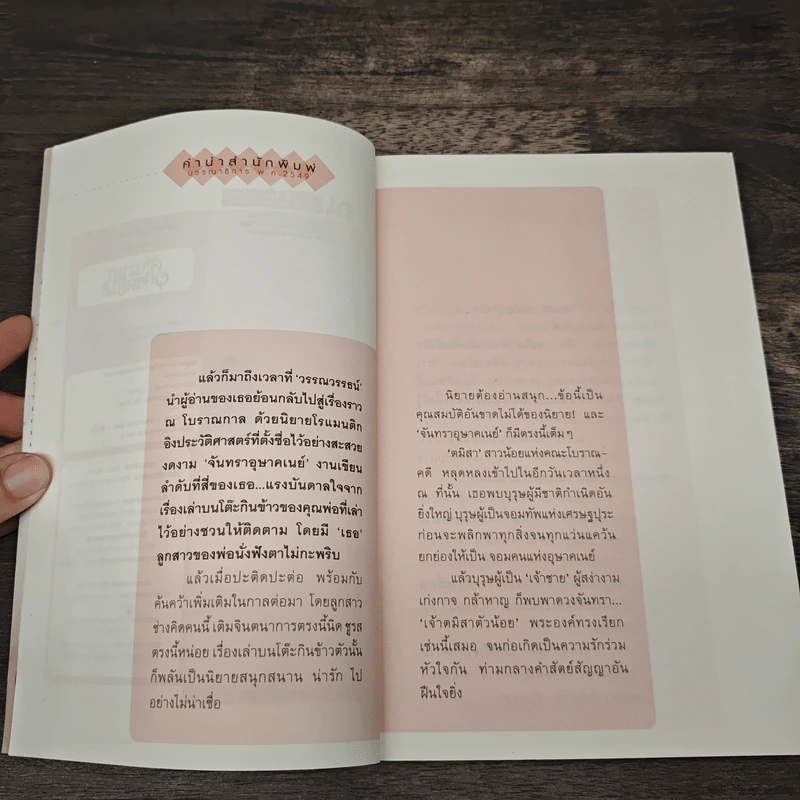 คำนำสำนักพิมพ์
บรรณาธิการ พ.ค. 2549
แล้วก็มาถึงเวลาที่ ‘วรรณวรรธน์’
นำผู้อ่านของเธอย้อนกลับไปสู่เรื่องราว
ณ โบราณกาล ด้วยนิยายโรแมนติก
อิงประวัติศาสตร์ที่ตั้งชื่อไว้อย่างสะสวย
งดงาม ‘จันทราอุษาคเนย์’ งานเขียน
ลำดับที่สี่ของเธอ...แรงบันดาลใจจาก
เรื่องเล่าบนโต๊ะกินข้าวของคุณพ่อที่เล่า
ไว้อย่างชวนให้ติดตาม โดยมี ‘เธอ’
ลูกสาวของพ่อนั่งฟังตาไม่กะพริบ
แล้วเมื่อปะติดปะต่อ พร้อมกับ
ค้นคว้าเพิ่มเติมในกาลต่อมา โดยลูกสาว
ช่างคิดคนนี้ เติมจินตนาการตรงนี้นิด ชูรส
ตรงนี้หน่อย เรื่องเล่าบนโต๊ะกินข้าวตัวนั้น
ก็พลันเป็นนิยายสนุกสนาน น่ารัก ไป
อย่างไม่น่าเชื่อ
นิยายต้องอ่านสนุก...ข้อนี้เป็น
คุณสมบัติอันขาดไม่ได้ของนิยาย! และ
‘จันทราอุษาคเนย์’ ก็มีตรงนี้เต็มๆ
‘ตมิสา’ สาวน้อยแห่งคณะโบราณ-
คดี หลุดหลงเข้าไปในอีกวันเวลาหนึ่ง
ณ ที่นั้น เธอพบบุรุษผู้มีชาติกำเนิดอัน
ยิ่งใหญ่ บุรุษผู้เป็นจอมทัพแห่งเศรษฐปุระ
ก่อนจะพลิกพาทุกสิ่งจนทุกแว่นแคว้น
ยกย่องให้เป็น จอมคนแห่งอุษาคเนย์
แล้วบุรุษผู้เป็น ‘เจ้าชาย’ ผู้สง่างาม
เก่งกาจ กล้าหาญ ก็พบพาดวงจันทรา...
‘เจ้าตมิสาตัวน้อย’ พระองค์ทรงเรียก
เช่นนี้เสมอ จนก่อเกิดเป็นความรักร่วม
หัวใจกัน ท่ามกลางคำสัตย์สัญญาอัน
ฝืนใจยิ่ง